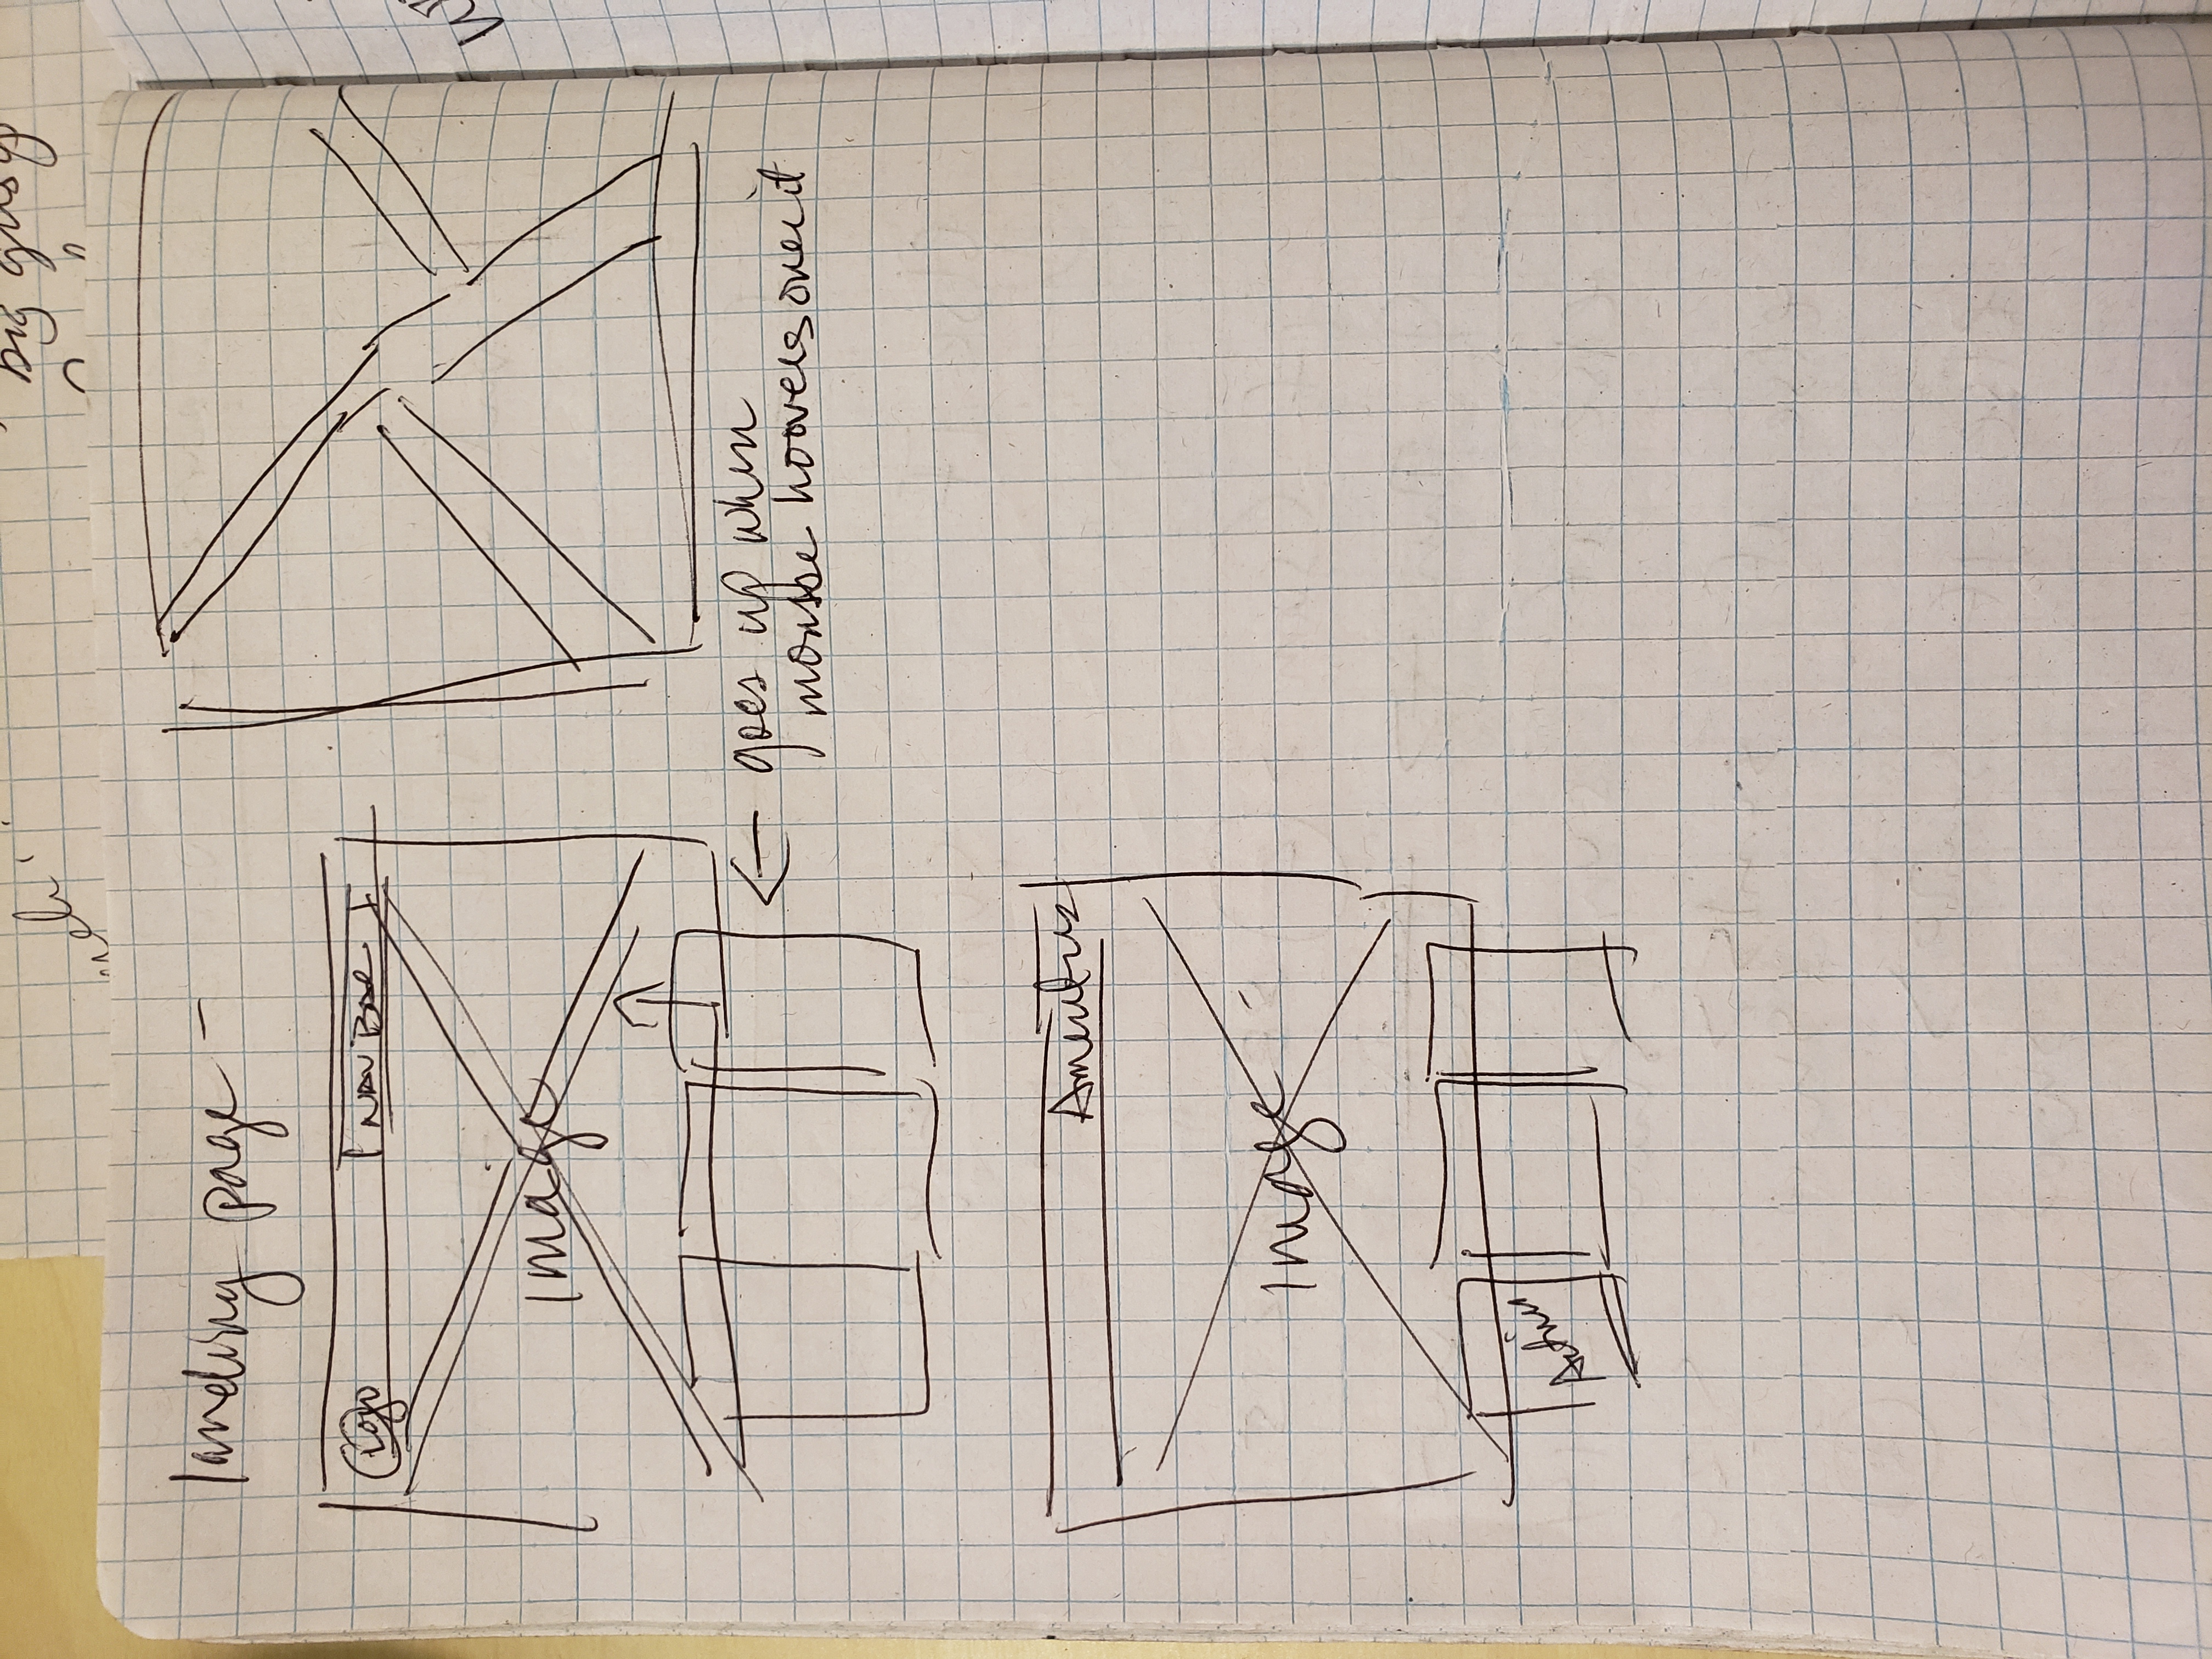 big
landing page -
Logo
NAV BAR
Image
← goes up when
mouse hoovers over it
Image